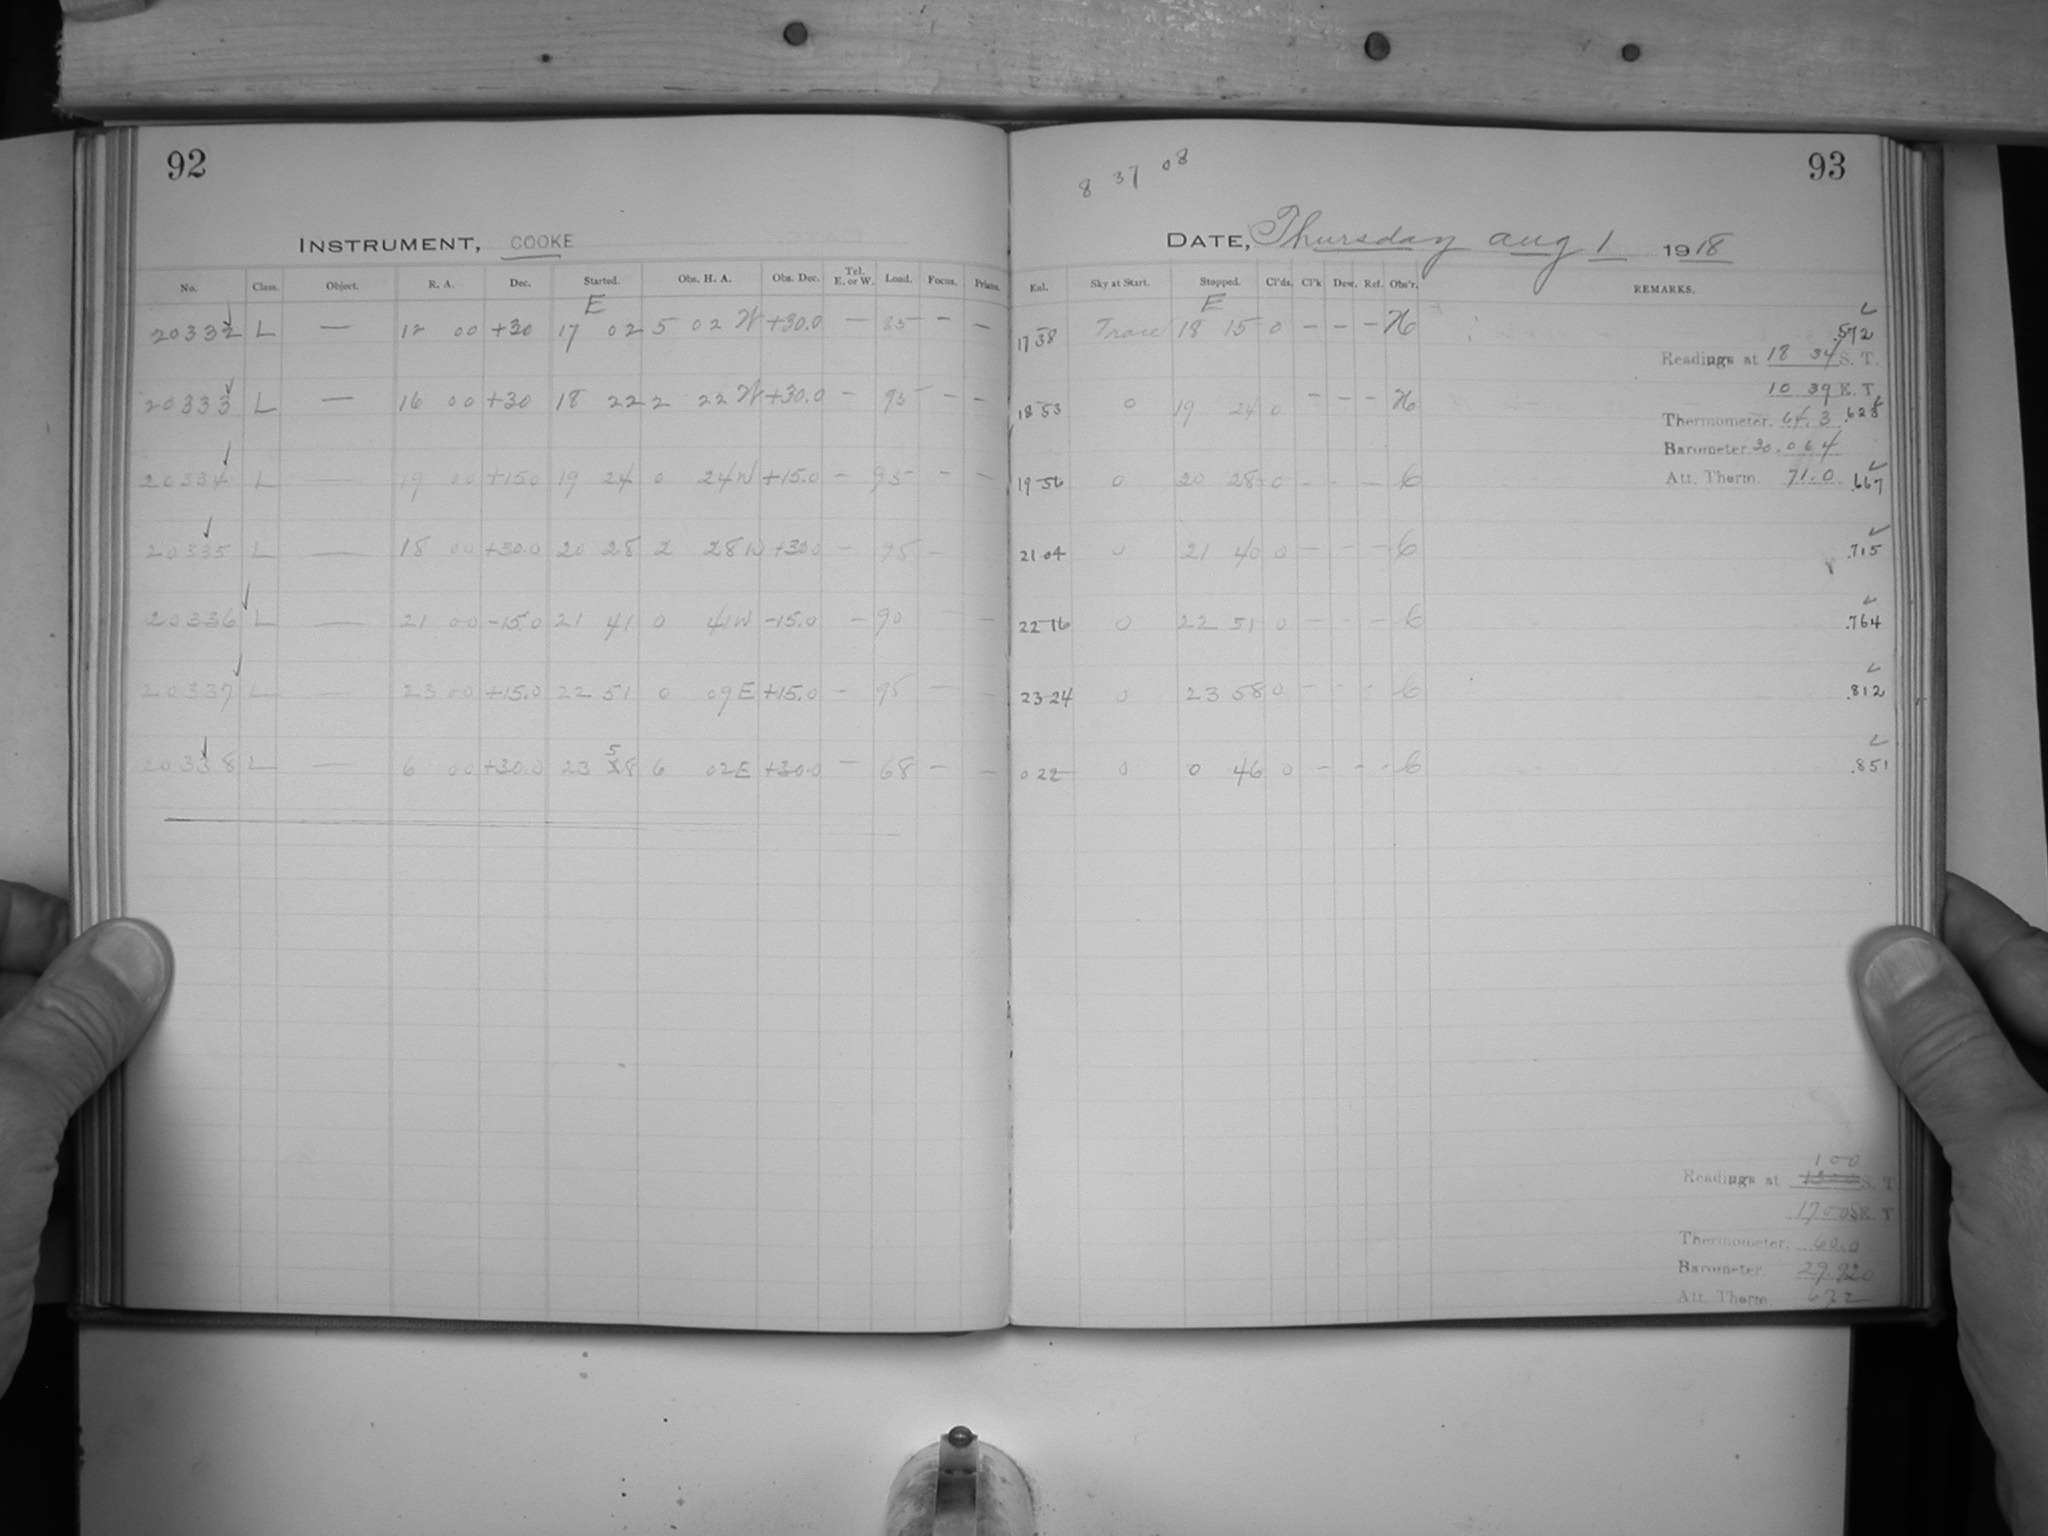 92
INSTRUMENT, COOKE
No. Class. Object. R. A. Dec. Started. Obs. H. A. Obs. Dec. Tel. E. or W. Load. Focus. Prisms.
E
20332 L — 12 00 +30 17 02 5 02 W +30.0 — 85 — —
20333 L — 16 00 +30 18 22 2 22 W +30.0 — 95 — — —
20334 L — 19 00 +15.0 19 24 0 24 W +15.0 — 95 — —
20335 L — 18 00 +30.0 20 28 2 28 W +30.0 — 95 —
20336 L — 21 00 -15.0 21 41 0 41 W -15.0 — 90 —
20337 L — 23 00 +15.0 22 51 0 09 E +15.0 — 95 — —
5
20338 L — 6 00 +30.0 23 8 6 02 E +30.0 — 68 — —
8 37 08
93
DATE, Thursday Aug 1 1918
Sky at Start. Stopped. Cl'ds. Cl'k Dew. Ref. Obs'r. REMARKS.
E
17 38 Trace 18 15 0 — — — H .572
Readings at 18 34 S. T.
10 39 E. T
18 53 0 19 24 0 — — — H
Thermometer. 64.3 .628
Barometer 30.064
19 56 0 20 28 0 — — — 6 Att. Therm. 71.0 .667
21 04 0 21 40 0 — — — 6 .715
22 16 0 22 51 0 — — — 6 .764
23 24 0 23 58 0 — — — 6 .812
0 22 0 0 46 0 — — — 6 .851
1 00
Readings at 1300 S. T
17 00 E. T
Thermometer. 60.0
Barometer 29.920
Att. Therm. 67.2